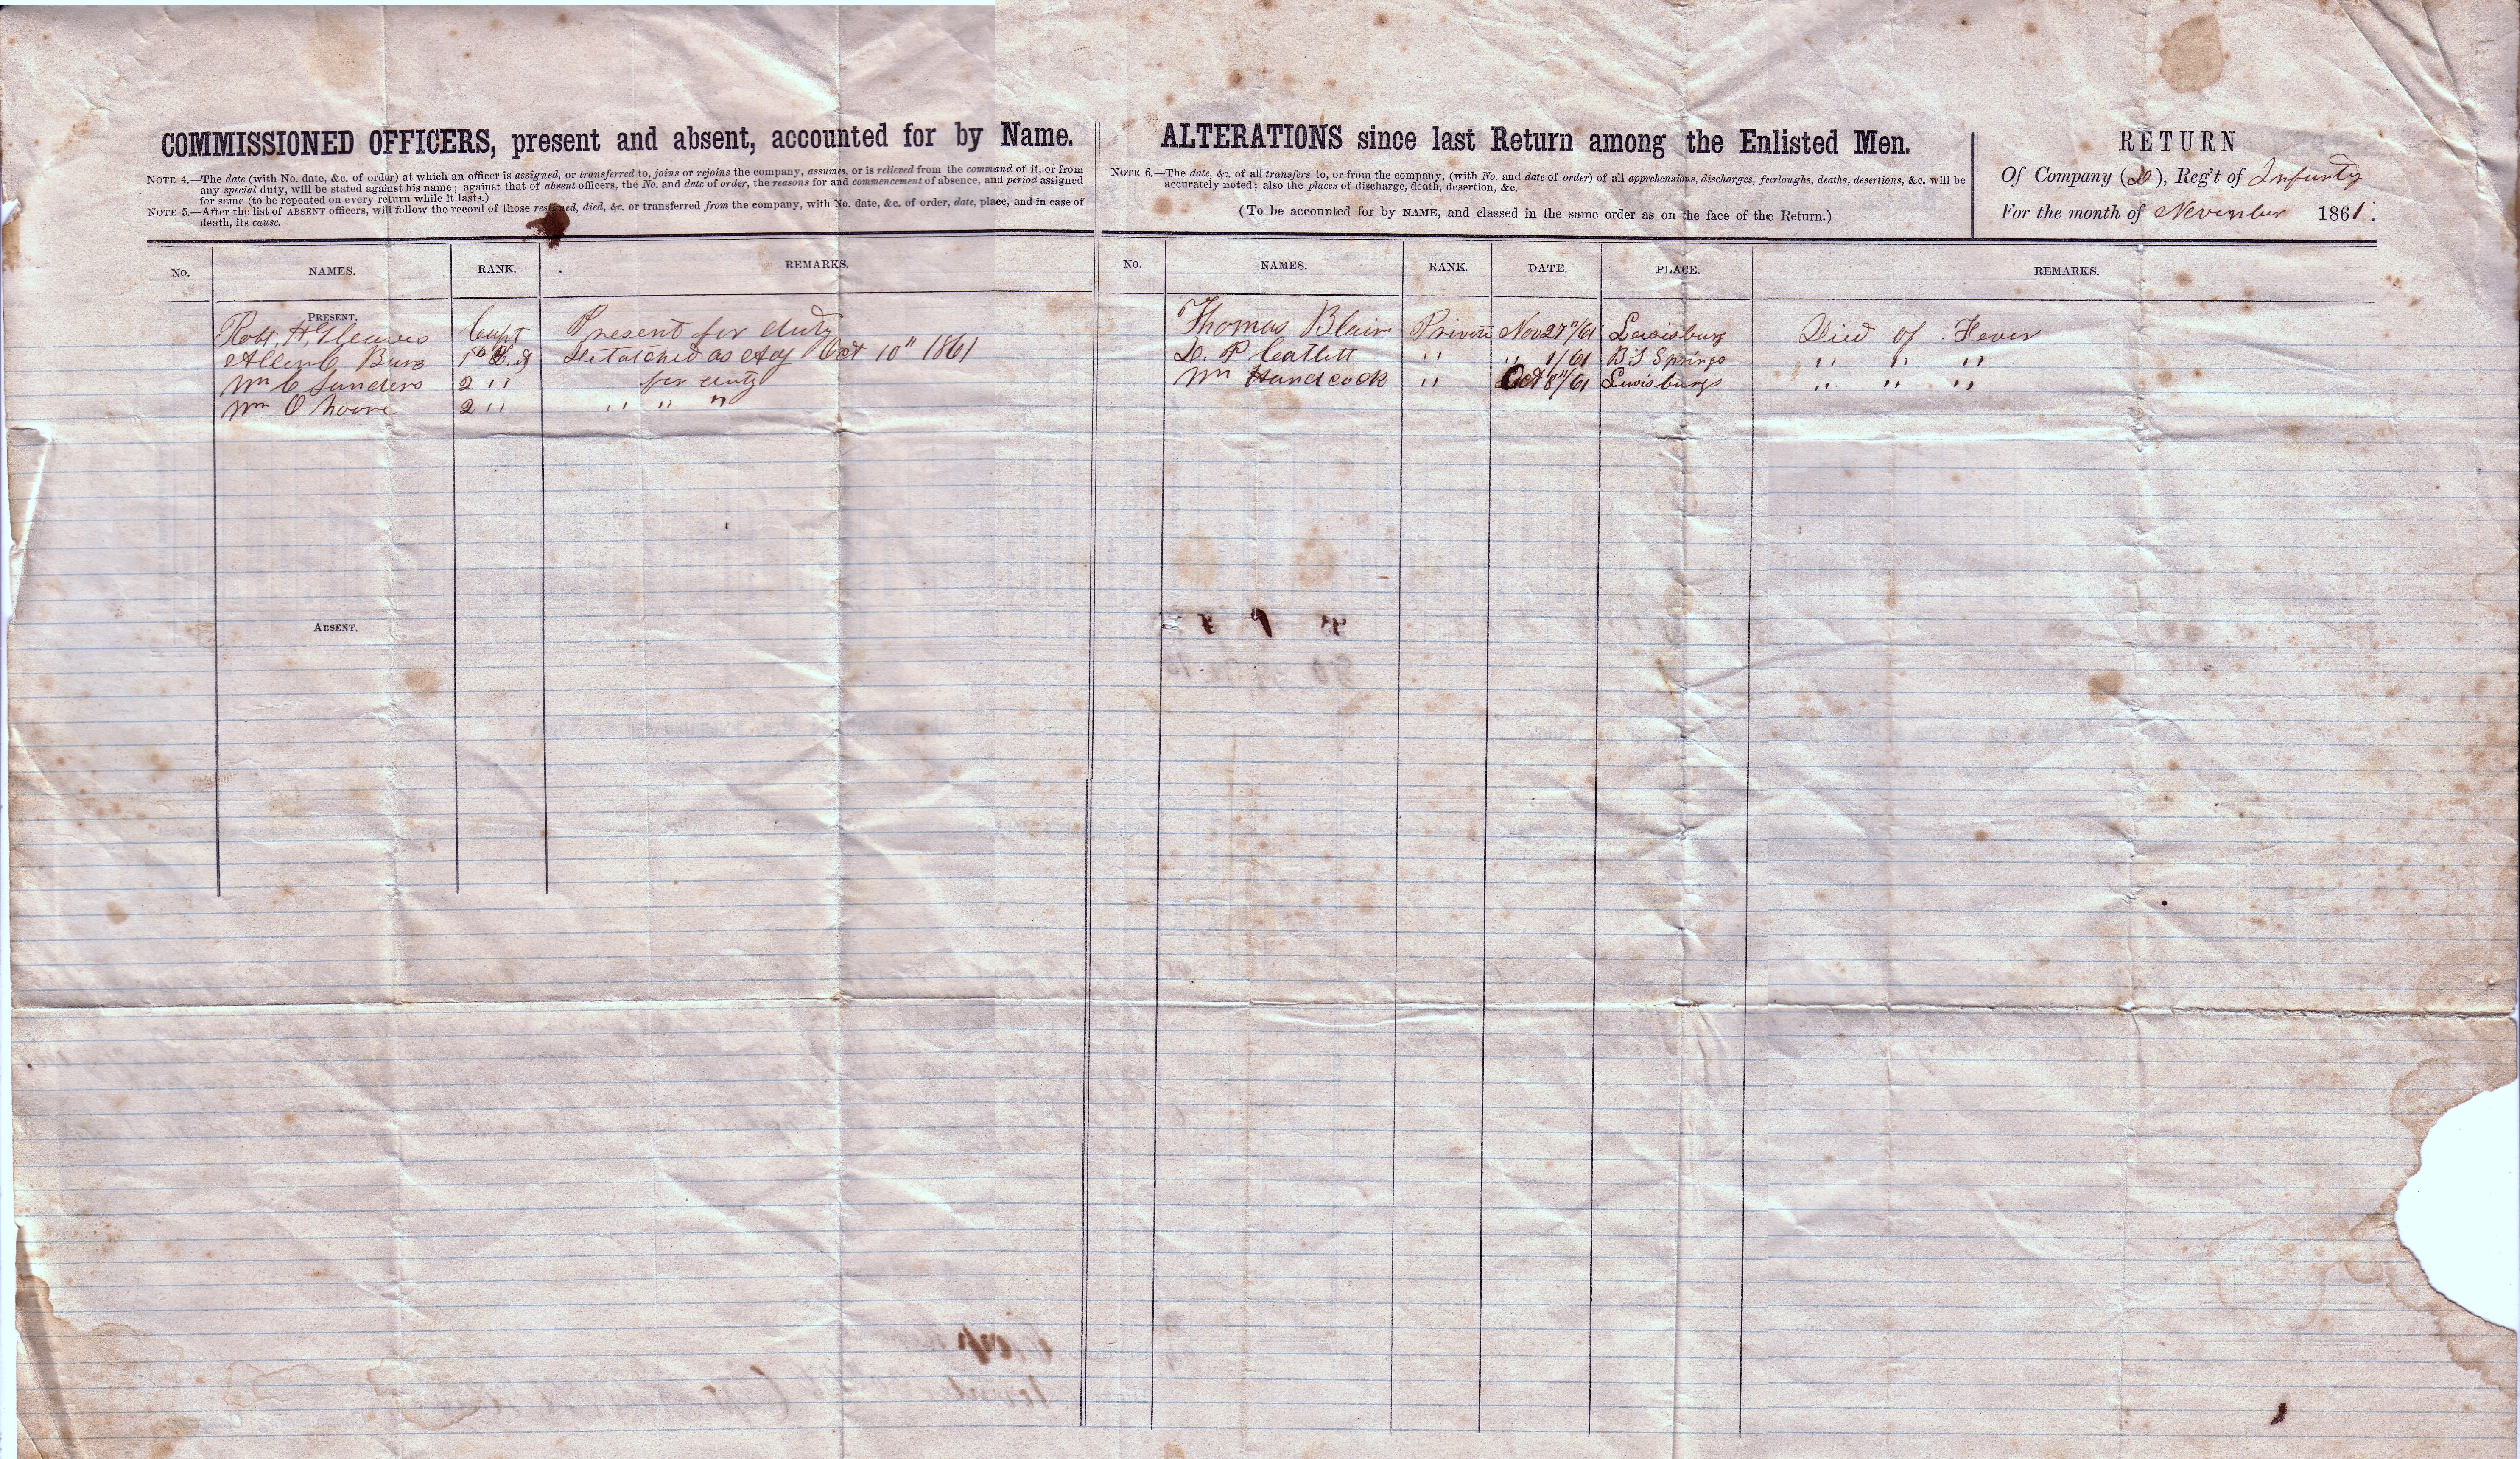 COMMISSIONED OFFICERS, present and absent, accounted for by Name.
NOTE 4.—The date (with No. date, &c. of order) at which an officer is assigned, or transferred to, joins or rejoins the company, assumes, or is relieved from the command of it, or from
any special duty, will be stated against his name; against that of absent officers, the No. and date of order, the reasons for and commencement of absence, and period assigned
for same (to be repeated on every return while it lasts.)
NOTE 5.—After the list of ABSENT officers, will follow the record of those resigned, died, &c. or transferred from the company, with No. date, &c. of order, date, place, and in case of
death, its cause.
No. NAMES. RANK. REMARKS.
PRESENT.
Robt. H. Gleaves Capt Present for duty
Allen C 1st Lieut Detatched as Oct 10" 1861
Wm C Sanders 2 " for duty
Wm O Moore 2 " " " "
ABSENT.
ALTERATIONS since last Return among the Enlisted Men.
NOTE 6.—The date, &c. of all transfers to, or from the company, (with No. and date of order) of all apprehensions, discharges, furloughs, deaths, desertions, &c. will be
accurately noted; also the places of discharge, death, desertion, &c.
(To be accounted for by NAME, and classed in the same order as on the face of the Return.)
No. NAMES. RANK. DATE. PLACE. REMARKS.
Thomas Blair Private Nov 27"/61 Lewisburg Died of Fever
D. P Catlett " " 1/61 Springs " " "
Wm Handcock " Oct 8"/61 Lewisburg " " "
RETURN
Of Company (D), Reg't of Infantry
For the month of November 1861.